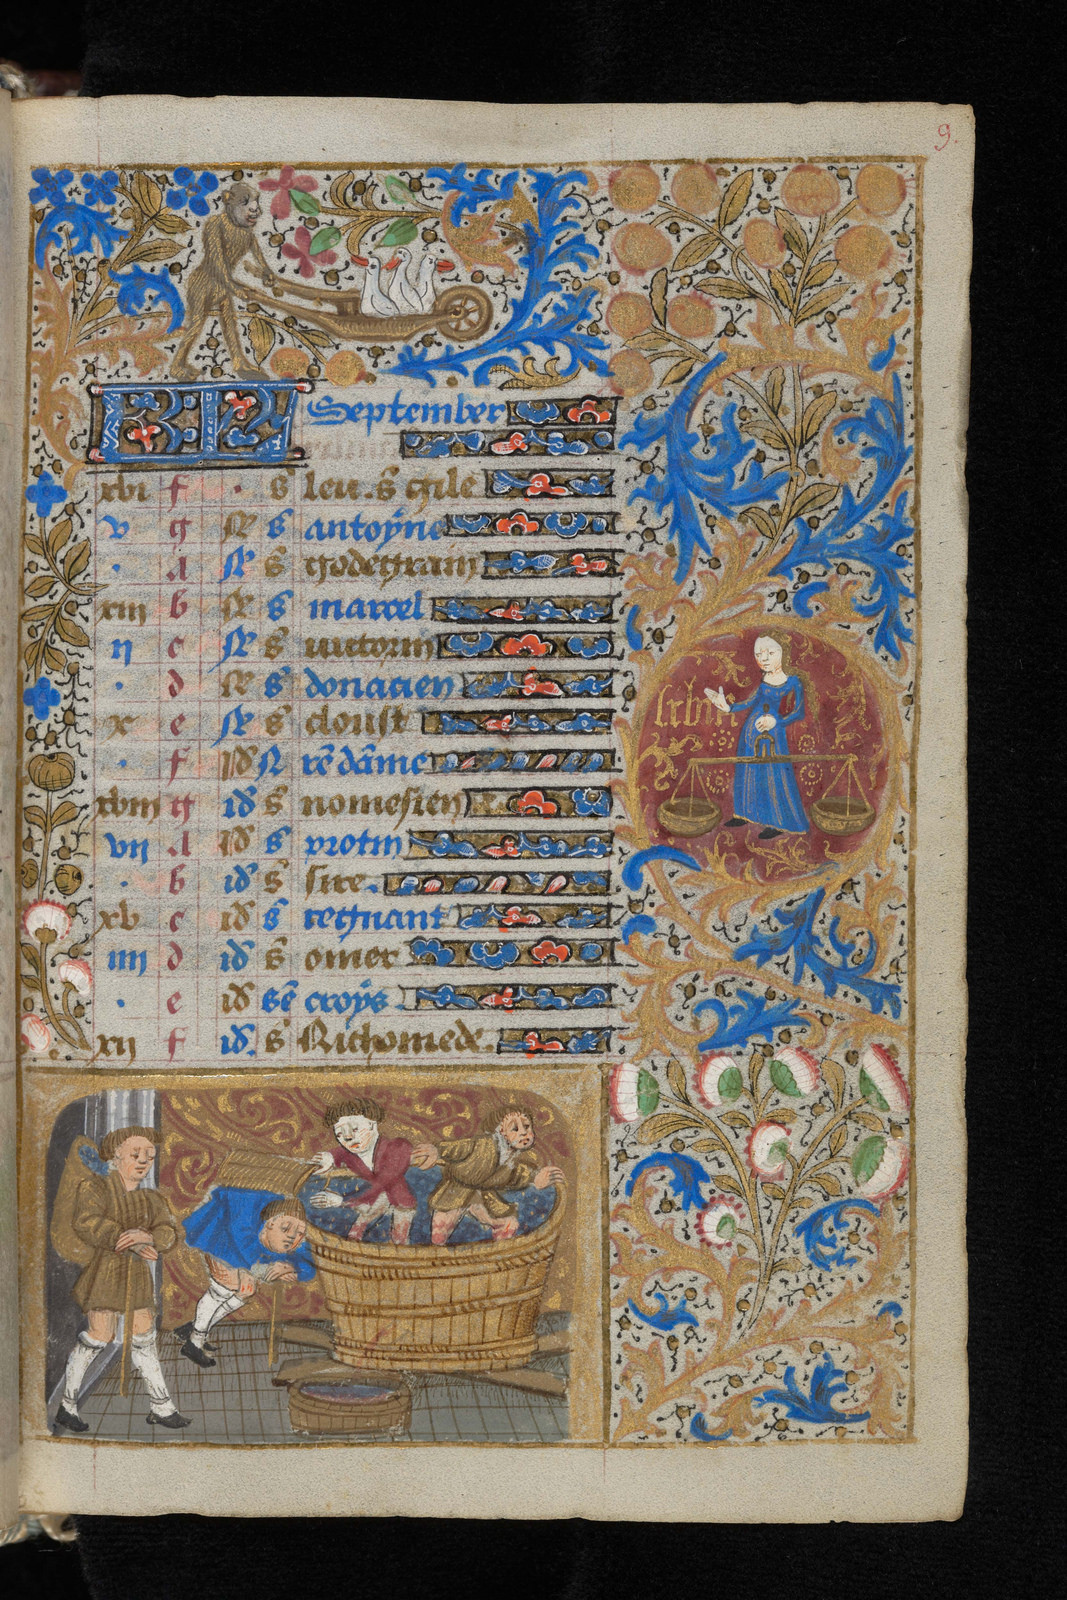 9.
KL September
xvi f . s̄ leu. s̄ gile
v g N̄ s̄ antoÿne
. A N̄ s̄ godegrain
xiii b N̄ s̄ marcel
ii c N̄ s̄ victorin
. d N̄ s̄ donacien
x e N̄ s̄ cloust
. f id N̄ r̄e dāme
xviii g id s̄ nomesien
vii A id s̄ protin
. b id s̄ sire.
xv c id s̄ regnant
libra
iiii d id s̄ omer
. e id sē croÿs
xii f id. s̄ Richomede.